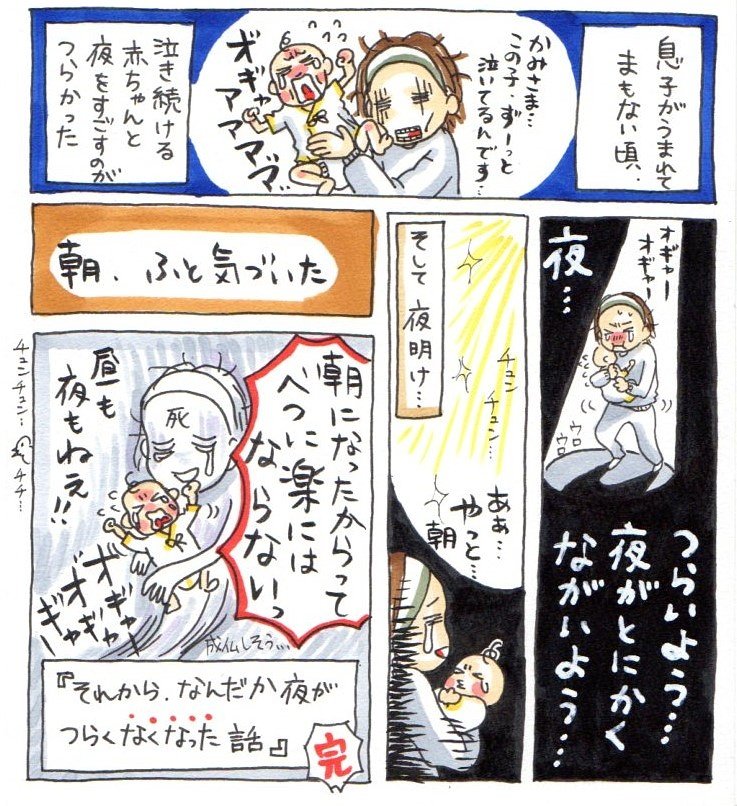 息子がうまれて
まもない頃、
かみさま…
この子、ずーっと
泣いてるんです…
オギャー
アアアア゛ア゛
泣き続ける
赤ちゃんと
夜をすごすのが
つらかった
オギャー
オギャー
夜…
ウロ
ウロ
つらいよう…
夜がとにかく
ながいよう…
そして夜明け…
チュン
チュン…
あぁ…
やっと…
朝
朝、ふと気づいた
朝になったからって
べつに楽には
ならないっ
死
昼も
夜もねえ!!
オギャー
オギャー
ギャギャー
成仏しそう…
チュンチュン…
チチ…
『それから、なんだか夜が
つらくなくなった話』
完